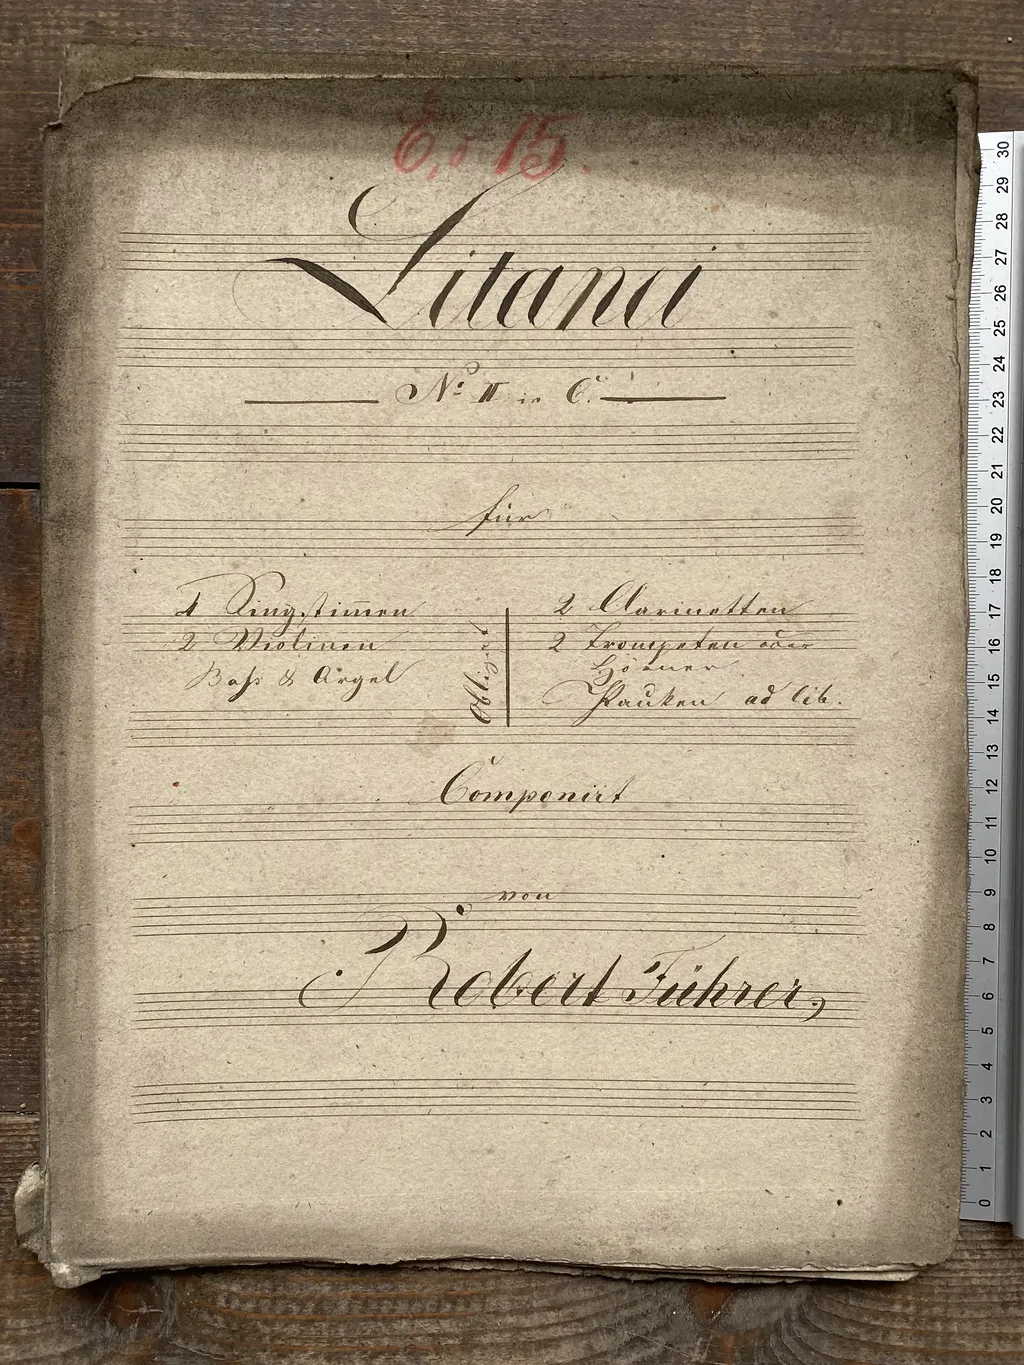 E, d 15.
Litanei
No II in C.
für
4 Singstimmen
2 Violinen
Bass & Orgel
Obligat
2 Clarinetten
2 Trompeten oder
Hörner
Pauken ad lib.
Componirt
von
Robert Führer,
30
29
28
27
26
25
24
23
22
21
20
19
18
17
16
15
14
13
12
11
10
9
8
7
6
5
4
3
2
1
0